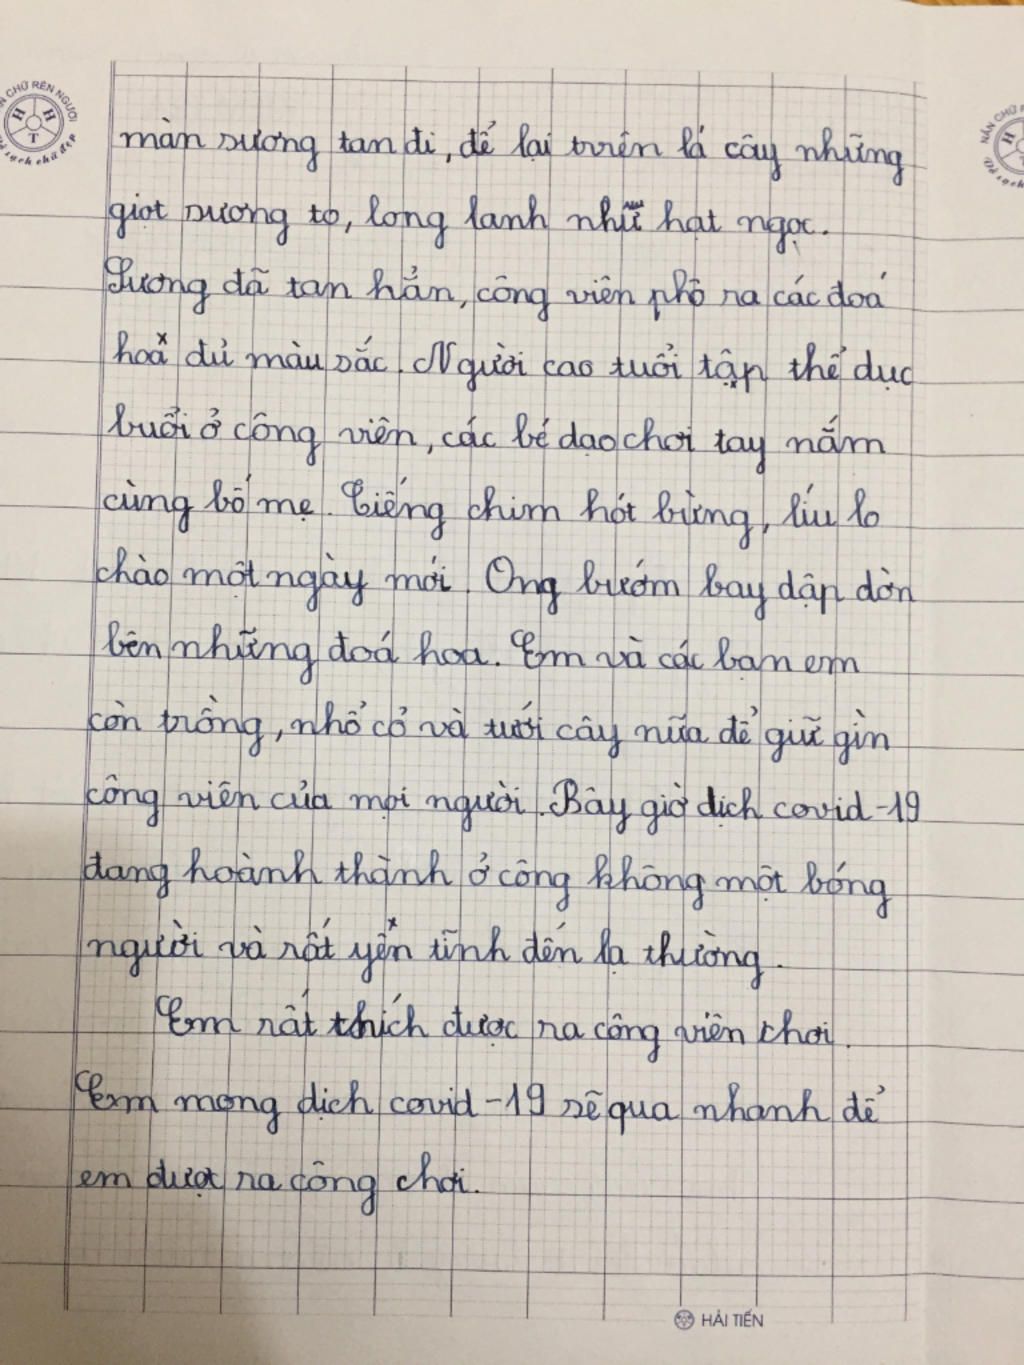 màn sương tan đi, để lại trên lá cây những
giọt sương to, long lanh như hạt ngọc.
Sương đã tan hẳn, công viên phô ra các đoá
hoa đủ màu sắc. Người cao tuổi tập thể dục
buổi ở công viên, các bé dạo chơi tay nắm
cùng bố mẹ. Tiếng chim hót bừng, líu lo
chào một ngày mới. Ong bướm bay dập dờn
bên những đoá hoa. Em và các bạn em
còn trồng, nhổ cỏ và tưới cây nữa để giữ gìn
công viên của mọi người. Bây giờ dịch covid-19
đang hoành thành ở công không một bóng
người và rất yên tĩnh đến lạ thường.
Em rất thích được ra công viên chơi.
Em mong dịch covid-19 sẽ qua nhanh để
em được ra công chơi.
HẢI TIẾN